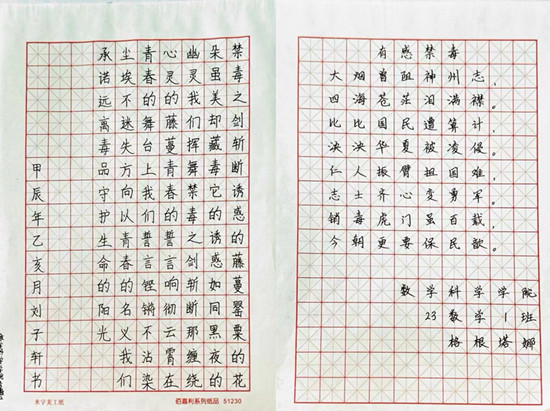 禁毒之剑斩断诱惑的藤蔓罂粟的花
朵虽美却藏毒它的诱惑如同黑夜的
幽灵我们挥舞禁毒之剑斩断那缠绕
心灵的藤蔓青春的誓言响彻云霄在
青春的舞台上我们的誓言铿锵不沾染
尘埃不迷失方向以青春的名义我们
承诺远离毒品守护生命的阳光
甲辰年乙亥月刘子轩书
米字美工纸
佰嘉利系列纸品 51230
有感禁毒
大烟曾阻神州志，
四海苍茫泪满襟。
比比国民遭算计，
泱泱华夏被凌侵。
仁人振臂担国难，
志士齐心变勇军。
销毒虎门虽百载，
今朝更要保民歆。
数学科学学院
23数学1班
格根塔娜